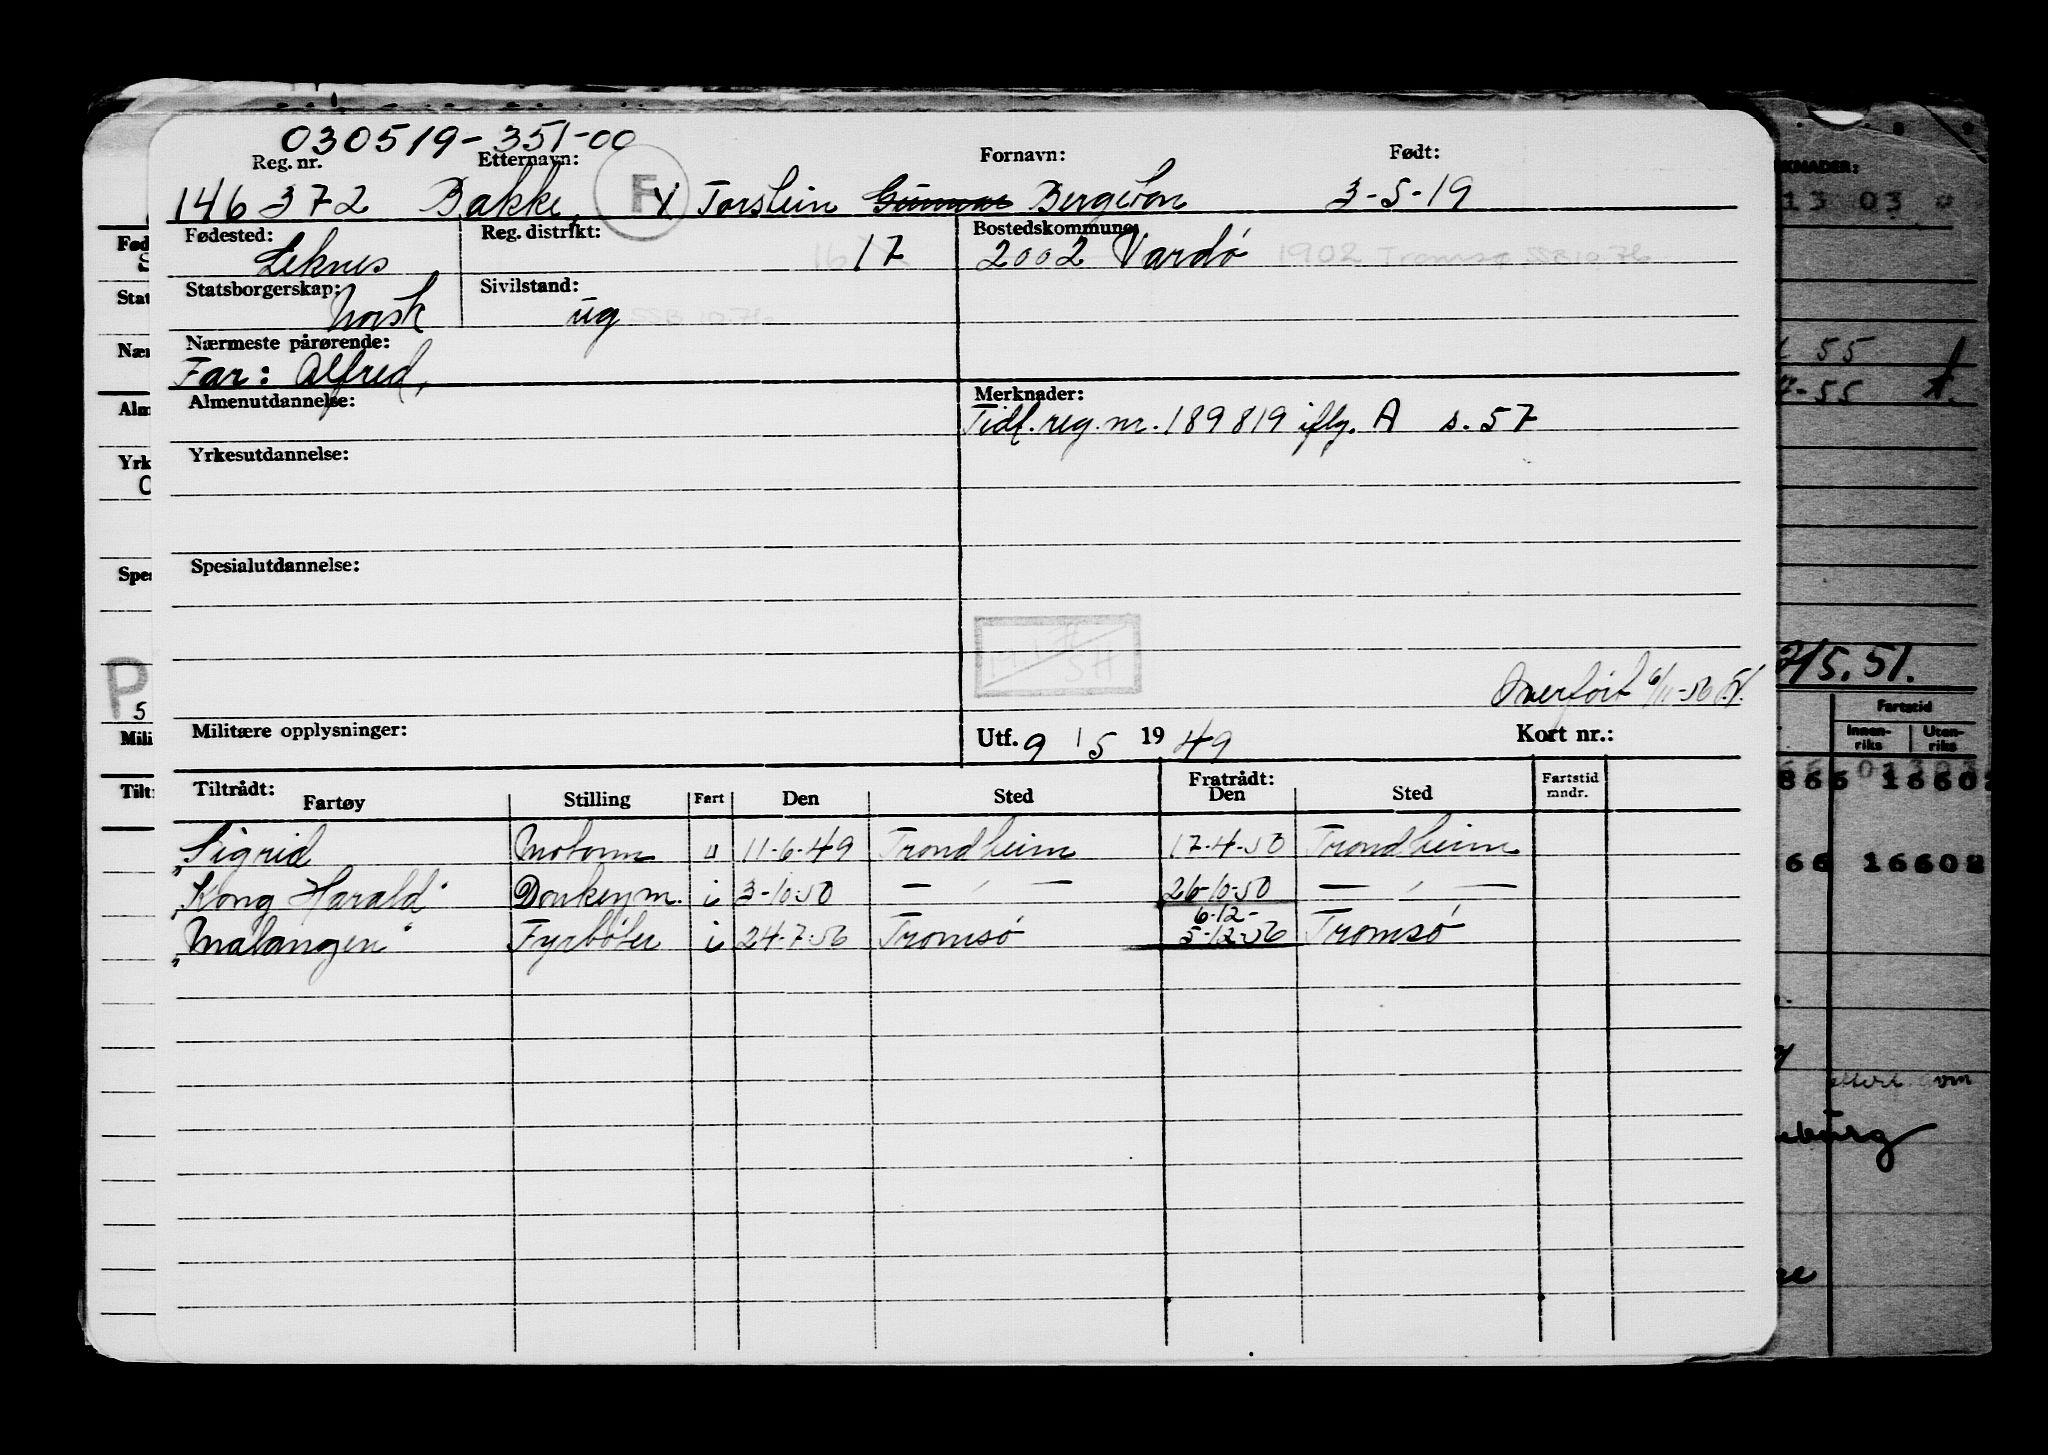 030519-351-00
Reg. nr. Etternavn: Fornavn: Født:
146372 Bakke, F X Torstein Gunnar Bergeton 3-5-19
Fødested: Reg. distrikt: Bostedskommune:
Leknes 16 17 2002 Vardø 1902 Tromsø SSB 10.76
Statsborgerskap: Sivilstand:
Norsk ug SSB 10.76
Nærmeste pårørende:
Far: Alfred,
Almenutdannelse: Merknader:
Tidl. reg. nr. 189819 iflg. A s. 57
Yrkesutdannelse:
Spesialutdannelse:
Overført 6/11-56
Militære opplysninger: Utf. 9/5 1949 Kort nr.:
Tiltrådt: Fratrådt: Fartstid
Fartøy Stilling Fart Den Sted Den Sted mndr.
"Sigrid Motorm u 11-6-49 Trondheim 17-4-50 Trondheim
"Kong Harald" Donkeym. i 3-10-50 — " — 26-10-50 — " —
6-12-
"Malangen" Fyrbøter i 24-7-56 Tromsø 5-12-56 Tromsø
Fød
Stat
Nær
Alm
Yrk
Spes
P
5
Mili
Tilt:
KNADER:
13 03
55
-55
2/5.51.
Fartstid
Innen-riks Uten-riks
866 16602
66 16602